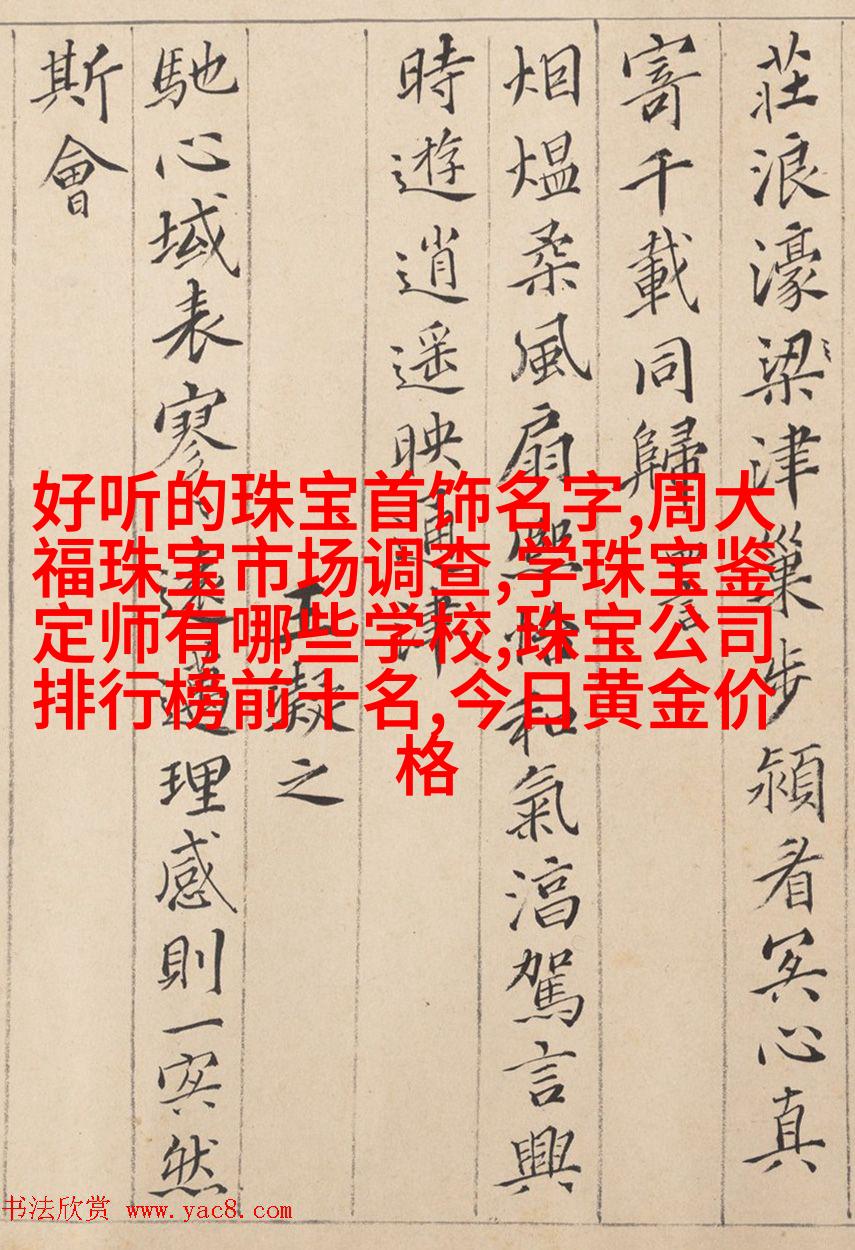 莊浪濠梁津巢步潁冥心真
寄千載同歸
烟煴柔風扇熙怡和氣淳駕言興
時遊逍遥映通津
王凝之
馳心域表寥寥遠邁理感則一冥然
斯會
好听的珠宝首饰名字,周大
福珠宝市场调查,学珠宝鉴
定师有哪些学校,珠宝公司
排行榜前十名,今日黄金价
格
书法欣赏 www.yac8.com